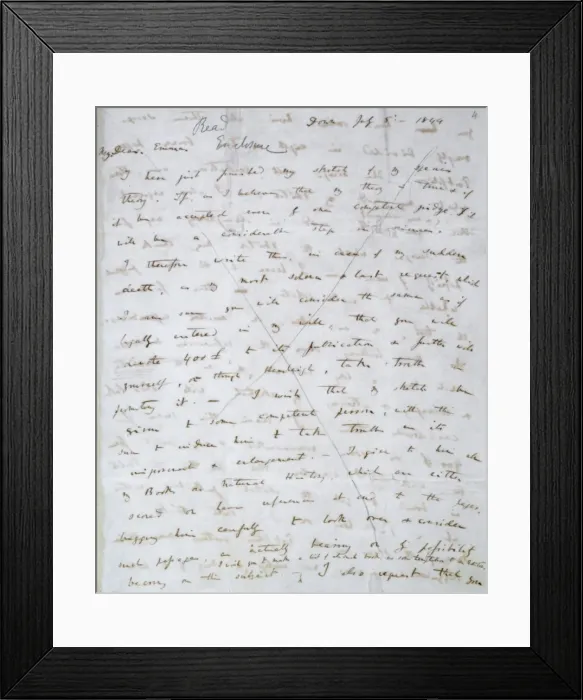 Read
Down July 5th — 1844
My. Dear. Emma. Enclosure
I have just finished my sketch of my species
theory. If, as I believe that my theory is true & if
it be accepted even by one competent judge, it
will be a considerable step in science.
I therefore write this, in case of my sudden
death, as my most solemn & last request, which
I am sure you will consider the same as if
legally entered in my will, that you will
devote 400£ to its publication & further will
yourself, or through Hensleigh, take trouble in
promoting it. — I wish that my sketch be
given to some competent person, with this
sum to induce him to take trouble in its
improvement & enlargement. — I give to him all
my Books on Natural History, which are either
scored or have references at end to the pages,
begging him carefully to look over & consider
such passages, as actually bearing or by possibility
I wish you to make a list of all such books, as some temptation to an Editor.
bearing on this subject. — I also request that you